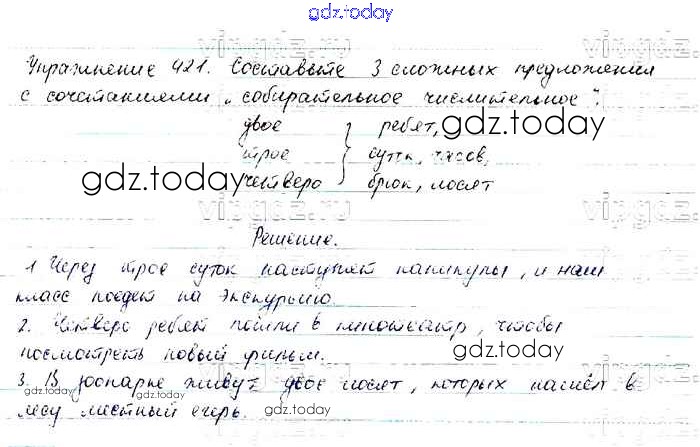 gdz.today
Упражнение 421. Составьте 3 сложных предложения
с сочетаниями „собирательное числительное".
двое ребят, gdz.today
трое суток, часов,
gdz.today четверо брюк, лосят
vipgdz.ru vipgdz.ru
Решение.
1 Через трое суток наступят каникулы, и наш
класс поедет на экскурсию
2. Четверо ребят пошли в кинотеатр, чтобы
посмотреть новый фильм. gdz.today
3. В зоопарке живут двое лосят, которых нашёл в
gdz.today
лесу местный егерь. gdz.today